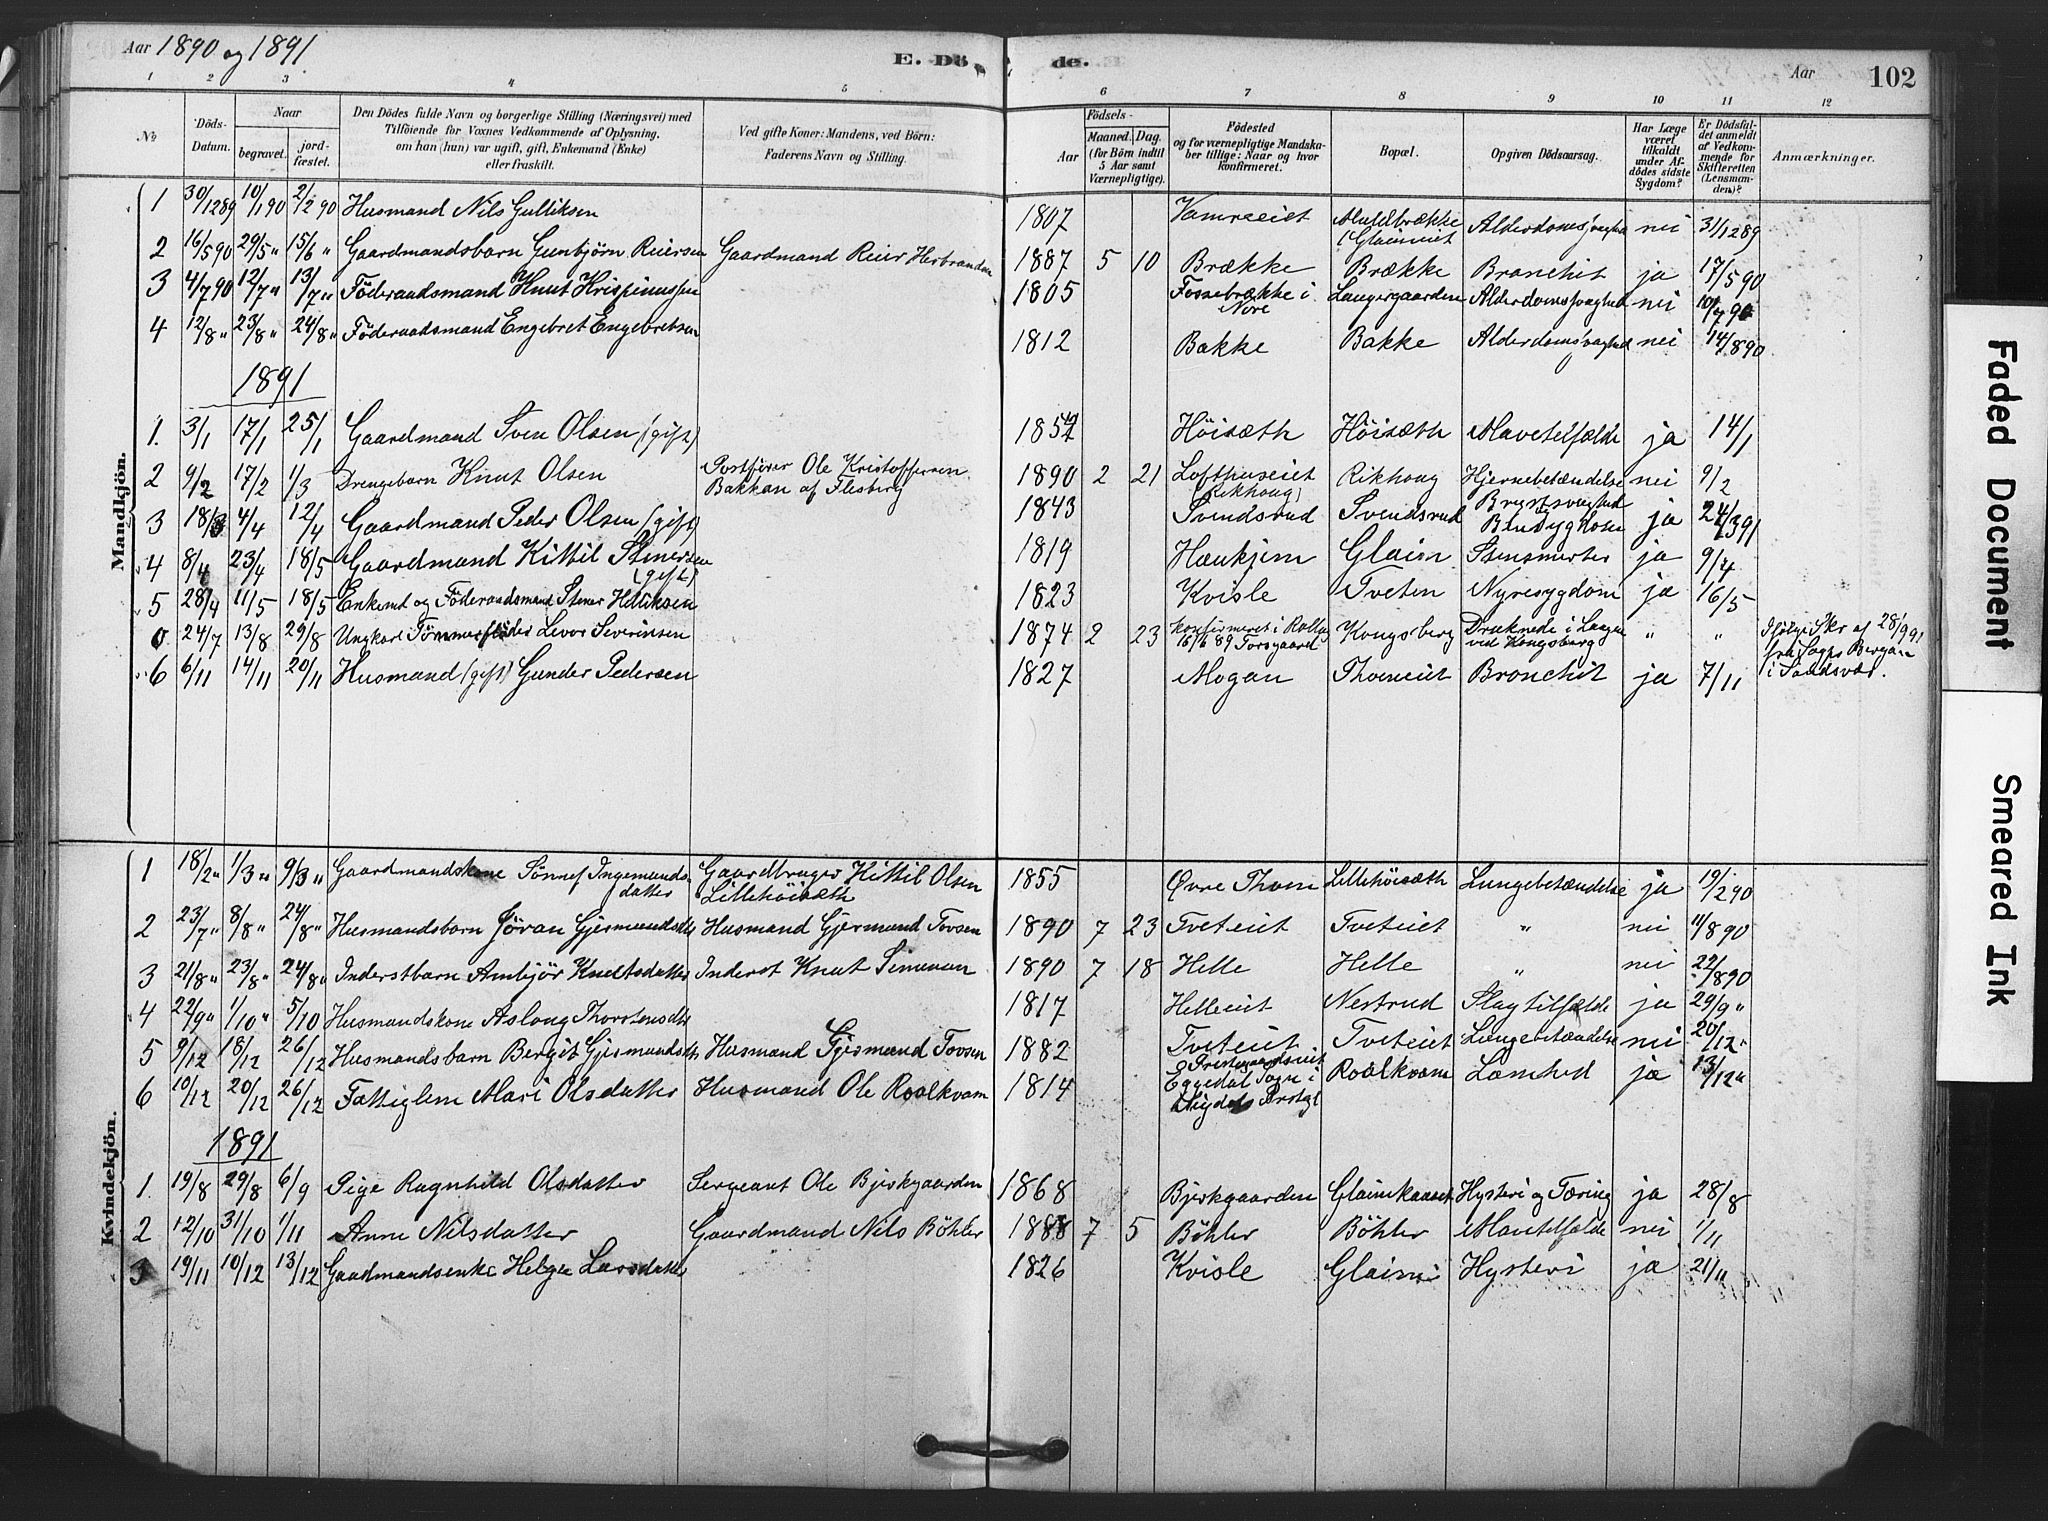 Aar 1890 og 1891
E. Dö
de.
Aar
102
1 2 3 4 5 6 7 8 9 10 11 12
No
Döds-
Datum.
Naar
begravet.
jord-
fæstet.
Den Dödes fulde Navn og borgerlige Stilling (Næringsvei) med
Tilföiende for Voxnes Vedkommende af Oplysning,
om han (hun) var ugift, gift, Enkemand (Enke)
eller fraskilt.
Ved gifte Koner: Mandens, ved Börn:
Faderens Navn og Stilling.
Födsels-
Aar
Maaned. Dag.
(for Börn indtil
5 Aar samt
Værnepligtige).
Födested
og for værnepligtige Mandska-
ber tillige: Naar og hvor
konfirmeret.
Bopæl.
Opgiven Dödsaarsag.
Har Læge
været
tilkaldt
under Af-
dödes sidste
Sygdom?
Er Dödsfal-
det anmeldt
af Vedkom-
mende for
Skifteretten
(Lensman-
den)?
Anmærkninger.
Mandkjön.
1 30/12 89 10/1 90 2/2 90 Husmand Nils Gulliksen 1807 Alderdomssvaghed nei 31/12 89
2 16/5 90 29/5 " 15/6 " Gaardmandsbarn Gunbjörn Reiersen Gaardmand Reier Herbrandsen 1887 5 10 Brække Brække Bronchit ja 17/5 90
3 4/7 90 12/7 " 13/7 " Föderaadsmand Knut Krispinussen 1805 Fossebrække i Nore Langergaarden Alderdomssvaghed nei 10/7 90
4 12/8 " 23/8 " 24/8 " Föderaadsmand Engebret Engebretsen 1812 Bakke Bakke Alderdomssvaghed nei 14/8 90
1891
1. 3/1 17/1 25/1 Gaardmand Sven Olsen (gift) Höisæth Höisæth Mavetilfælde ja 14/1
2 9/2 17/2 1/3 Drengebarn Knut Olsen Postförer Ole Kristoffersen
Bakkan af Flesberg 1890 2 21 Lofthuseiet
(Rikhoug) Rikhoug Hjernebetændelse nei 9/2
3 18/3 4/4 12/4 Gaardmand Peder Olsen (gift) 1843 Svendsrud Svendsrud Brystsvaghed
ja 24/3 91
4 8/4 23/4 18/5 Gaardmand Kittil Stenersen
(gift) 1819 Haukjem Glaim Stensmerter ja 9/4
5 28/4 11/5 18/5 Enkemd og Föderaadsmand Stener Helliksen 1823 Kvisle Tveten Nyresygdom ja 16/5
0 24/7 13/8 29/8 Ungkarl Tömmerflöder Levor Severinsen 1874 2 23 konfirmeret i Rollag
16/6 89 Forsgaard Kongsberg Druknede i Laagen
ved Kongsberg " " Ifölge Skr af 28/9 91
fra Sogns Bergan
i Sandsvær.
6 6/11 14/11 20/11 Husmand (gift) Gunder Pedersen 1827 Mogan Thoeneiet Bronchit ja 7/11
Kvindekjön.
1 18/2 " 1/3 " 9/3 " Gaardmandskone Sönnef Ingemunds-
datter Gaardbruger Kittil Olsen
Lillehöisæth 1855 Øvre Thoen Lillehöisæth Lungebetændelse ja 19/2 90
2 23/7 " 8/8 " 24/8 " Husmandsbarn Jöran Gjermundsdtr Husmand Gjermund Tovsen 1890 7 23 Tveteiet Tveteiet " nei 11/8 90
3 21/8 " 23/8 " 24/8 " Inderstbarn Ambjör Knutsdatter Inderst Knut Simensen 1890 7 18 Helle Helle " nei 22/8 90
4 22/9 " 1/10 " 5/10 Husmandskone Aslong Thorstensdtr 1817 Helleeiet Nestrud Slagtilfælde ja 29/9 "
5 9/12 18/12 26/12 Husmandsbarn Bergit Gjermundsdtr Husmand Gjermund Tovsen 1882 Tveteiet Tveteiet Lungebetændelse nei 20/12 "
6 10/12 20/12 26/12 Fattiglem Mari Olsdatter Husmand Ole Roalkvam 1814 Prestgaardseiet
Eggedal Sogn i
Sigdals Prstgl Roalkvam Lamhed ja 13/12 "
1891
1. 19/8 29/8 6/9 Pige Ragnhild Olsdatter Sergeant Ole Bjerkgaarden 1868 Bjerkgaarden Hysteri og Tæring ja 28/8
2 12/10 31/10 1/11 Anne Nilsdatter Gaardmand Nils Böhler 7 5 Böhler Böhler Mavetilfælde nei 1/11
3 19/11 10/12 13/12 Gaardmandsenke Helga Larsdatter " 1826 Kvisle Hysteri ja 21/11
Faded Document
Smeared Ink